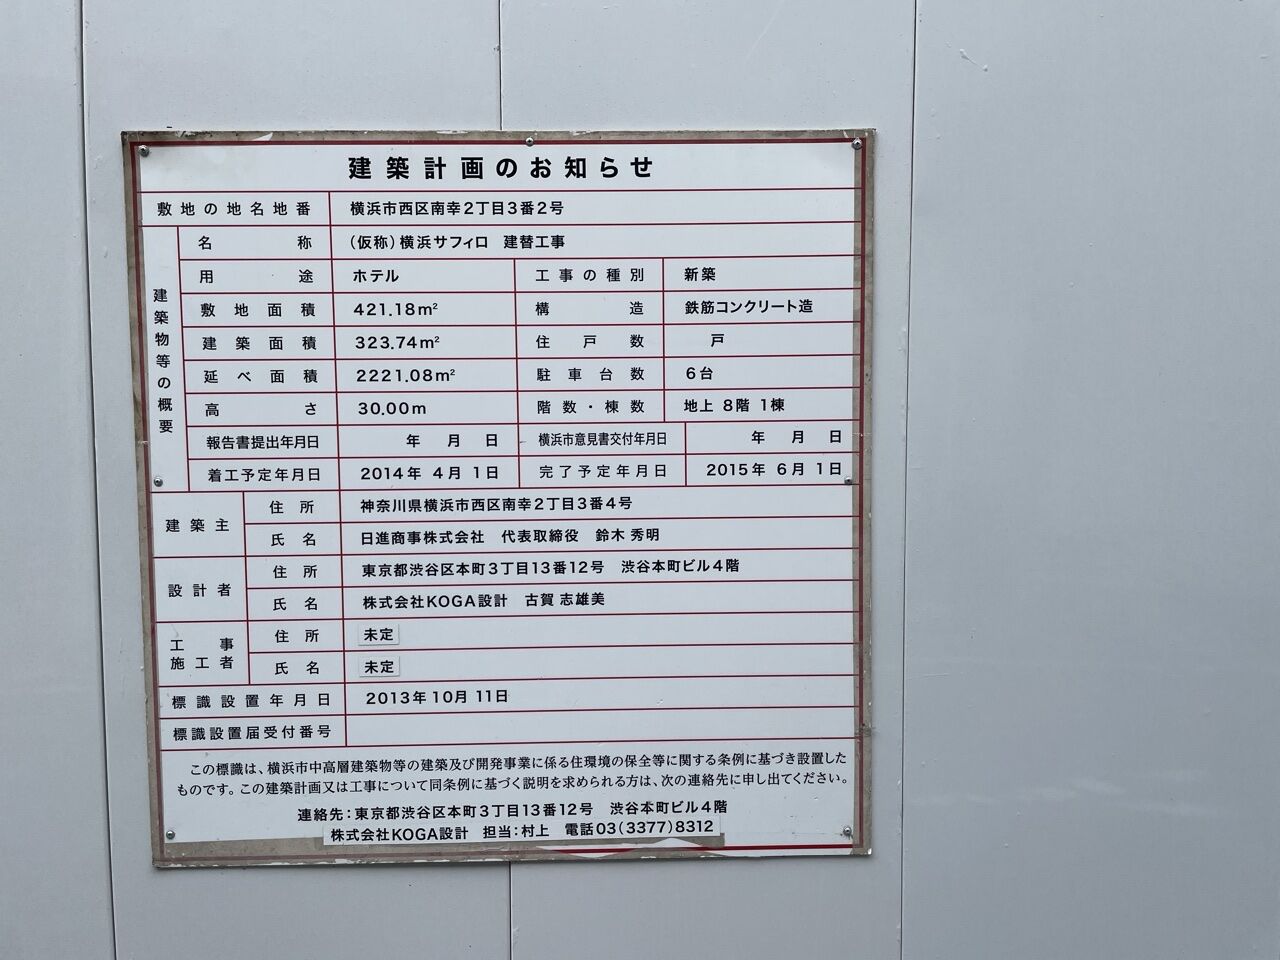 建築計画のお知らせ
敷地の地名地番 横浜市西区南幸2丁目3番2号
建築物等の概要
名称 (仮称)横浜サフィロ 建替工事
用途 ホテル 工事の種別 新築
敷地面積 421.18m² 構造 鉄筋コンクリート造
建築面積 323.74m² 住戸数 戸
延べ面積 2221.08m² 駐車台数 6台
高さ 30.00m 階数・棟数 地上 8階 1棟
報告書提出年月日 年 月 日 横浜市意見書交付年月日 年 月 日
着工予定年月日 2014年 4月 1日 完了予定年月日 2015年 6月 1日
建築主 住所 神奈川県横浜市西区南幸2丁目3番4号
氏名 日進商事株式会社 代表取締役 鈴木 秀明
設計者 住所 東京都渋谷区本町3丁目13番12号 渋谷本町ビル4階
氏名 株式会社KOGA設計 古賀 志雄美
工事施工者 住所 未定
氏名 未定
標識設置年月日 2013年10月11日
標識設置届受付番号
この標識は、横浜市中高層建築物等の建築及び開発事業に係る住環境の保全等に関する条例に基づき設置した
ものです。この建築計画又は工事について同条例に基づく説明を求められる方は、次の連絡先に申し出てください。
連絡先:東京都渋谷区本町3丁目13番12号 渋谷本町ビル4階
株式会社KOGA設計 担当:村上 電話03(3377)8312